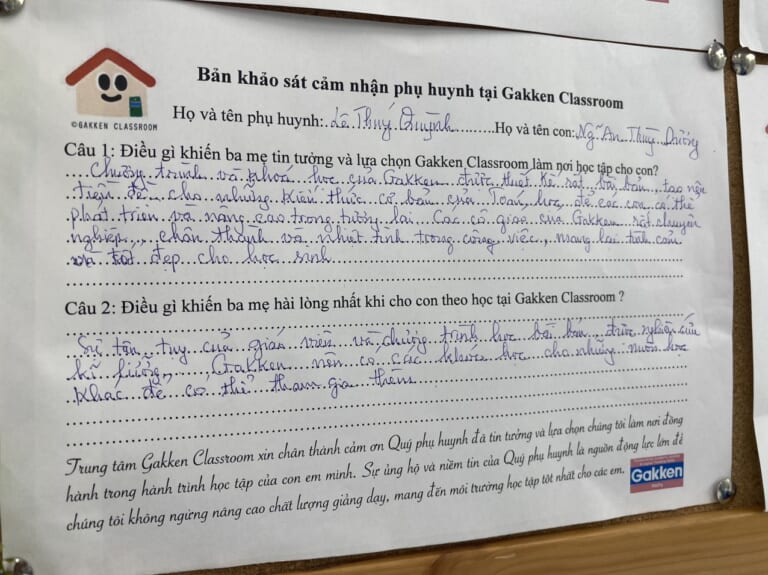 Bản khảo sát cảm nhận phụ huynh tại Gakken Classroom
©GAKKEN CLASSROOM
Họ và tên phụ huynh: Lê Thuý Quỳnh Họ và tên con: Ng~ An Thuỳ Dương
Câu 1: Điều gì khiến ba mẹ tin tưởng và lựa chọn Gakken Classroom làm nơi học tập cho con?
Chương trình và khoá học của Gakken được thiết kế rất bài bản, tạo nên
tiền đề cho những kiến thức cơ bản của Toán học để các con có thể
phát triển và nâng cao trong tương lai. Các cô giáo của Gakken rất chuyên
nghiệp, chân thành và nhiệt tình trong công việc, mang lại tình cảm
và tốt đẹp cho học sinh
Câu 2: Điều gì khiến ba mẹ hài lòng nhất khi cho con theo học tại Gakken Classroom ?
Sự tận tuỵ của giáo viên và chương trình học bài bản được nghiên cứu
kĩ lưỡng, Gakken nên có các khoá học cho những môn học
khác để có thể tham gia thêm
Trung tâm Gakken Classroom xin chân thành cảm ơn Quý phụ huynh đã tin tưởng và lựa chọn chúng tôi làm nơi đồng
hành trong hành trình học tập của con em mình. Sự ủng hộ và niềm tin của Quý phụ huynh là nguồn động lực lớn để
chúng tôi không ngừng nâng cao chất lượng giảng dạy, mang đến môi trường học tập tốt nhất cho các em.
Gakken